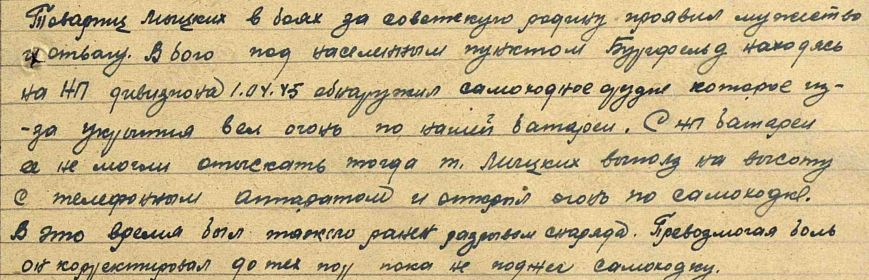 Товарищ Мыцких в боях за советскую родину проявил мужество
и отвагу. В бою под населенным пунктом Бургфельд находясь
на НП дивизиона 1.04.45 обнаружил самоходное орудие которое из-
-за укрытия вел огонь по нашей батареи. С нп батареи
ее не могли отыскать тогда т. Мыцких выполз на высоту
с телефонным аппаратом и открыл огонь по самоходке.
В это время был тяжело ранен разрывом снаряда. Превозмогая боль
он корректировал до тех пор пока не поджег самоходку.